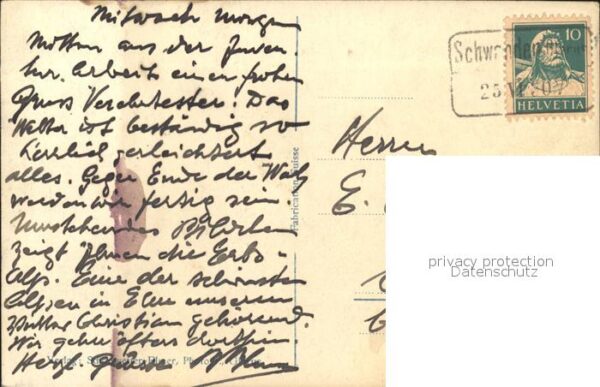 Mittwoch Morgen
Mitten aus der
Arbeit einen frohen
Gruss Verehrtester! Das
Wetter ist beständig so
herrlich erleichtert
alles. Gegen Ende der Woche
werden wir fertig sein.
Umstehendes Bildchen
zeigt Ihnen die Erbs-
Alp. Eine der schönsten
Alpen in Elm unserem
Vetter Christian gehörend.
Wir gehn öfters dorthin.
Herzl Grüsse
Verlag
Fabrication Suisse
Schwanden
25
10
HELVETIA
Herrn
E.
privacy protection
Datenschutz